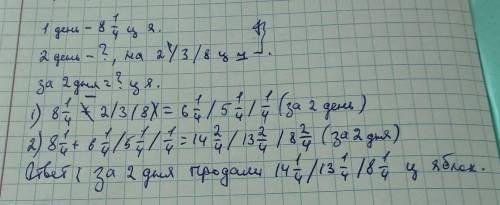 1 день - 8 1/4 ц я.
2 день - ?, на 2/3/8 ц
за 2 дня = ? ц я.
1) 8 1/4 - 2/3/8 = 6 1/4 / 5 1/4 / 1/4 (за 2 день)
2) 8 1/4 + 6 1/4 / 5 1/4 / 1/4 = 14 2/4 / 13 2/4 / 8 2/4 (за 2 дня)
Ответ: за 2 дня продали 14 1/4 / 13 1/4 / 8 1/4 ц яблок.